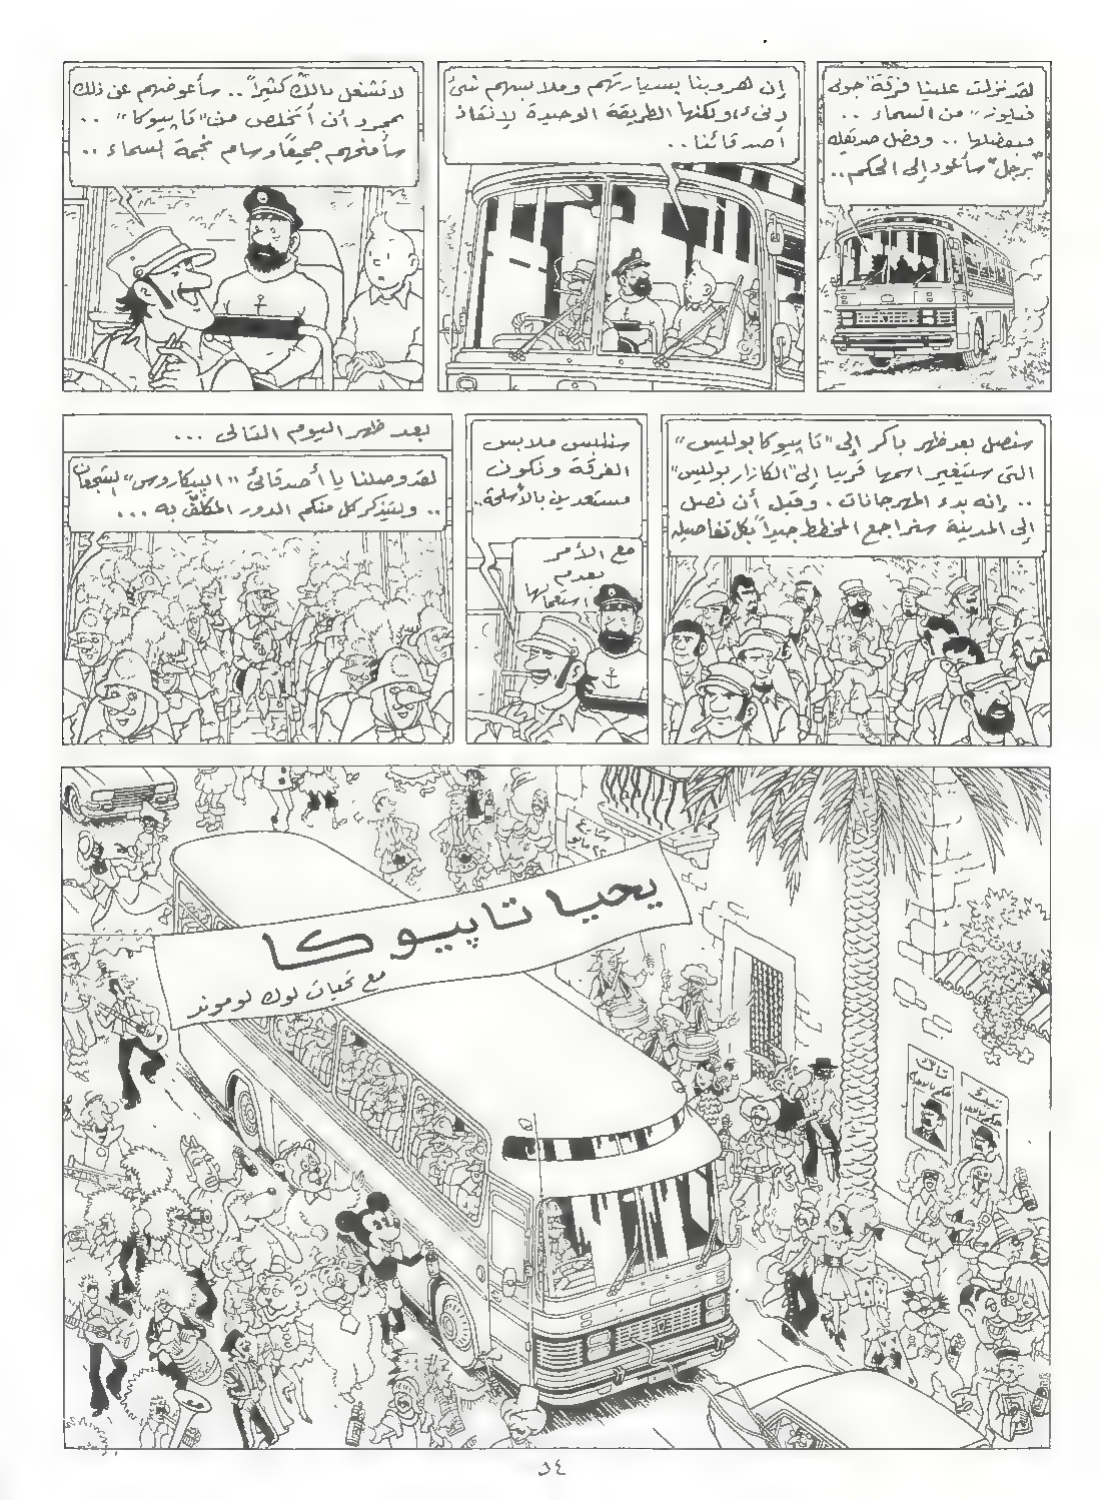 لقد نزلت علينا فرقة "جولي
فوليونز" من السماء ..
فبفضلها .. وفضل صديقك
"برجل" سأعود إلى الحكم ..
إن هروبنا بسيارتهم وملابسهم شئ
دنىء، ولكنها الطريقة الوحيدة لإنقاذ
أصدقائنا ..
لا تشغل بالك كثيراً .. سأعوضهم عن ذلك
بمجرد أن أتخلص من "تابيوكا" ..
سأمنحهم جميعاً وسام نجمة السماء ..
سنصل بعد ظهر باكر إلى "تابيوكابوليس"
التى ستيغير اسمها قريبا إلى "الكازار بوليس"
.. إنه بدء المهرجانات. وقبل أن نصل
إلى المدينة سنراجع المخطط جيداً بكل تفاصيله
سنلبس ملابس
الفرقة ونكون
مستعدين بالأسلحة ..
مع الأمر
بعدم
استعمالها
بعد ظهر اليوم التالى ...
لقد وصلنا يا أصدقائى "البيكاروس" الشجعان
.. وليتذكر كل منكم الدور المكلف به ...
يحيا تاپيوكا
مع تحيات لوك لوموند
٥٤